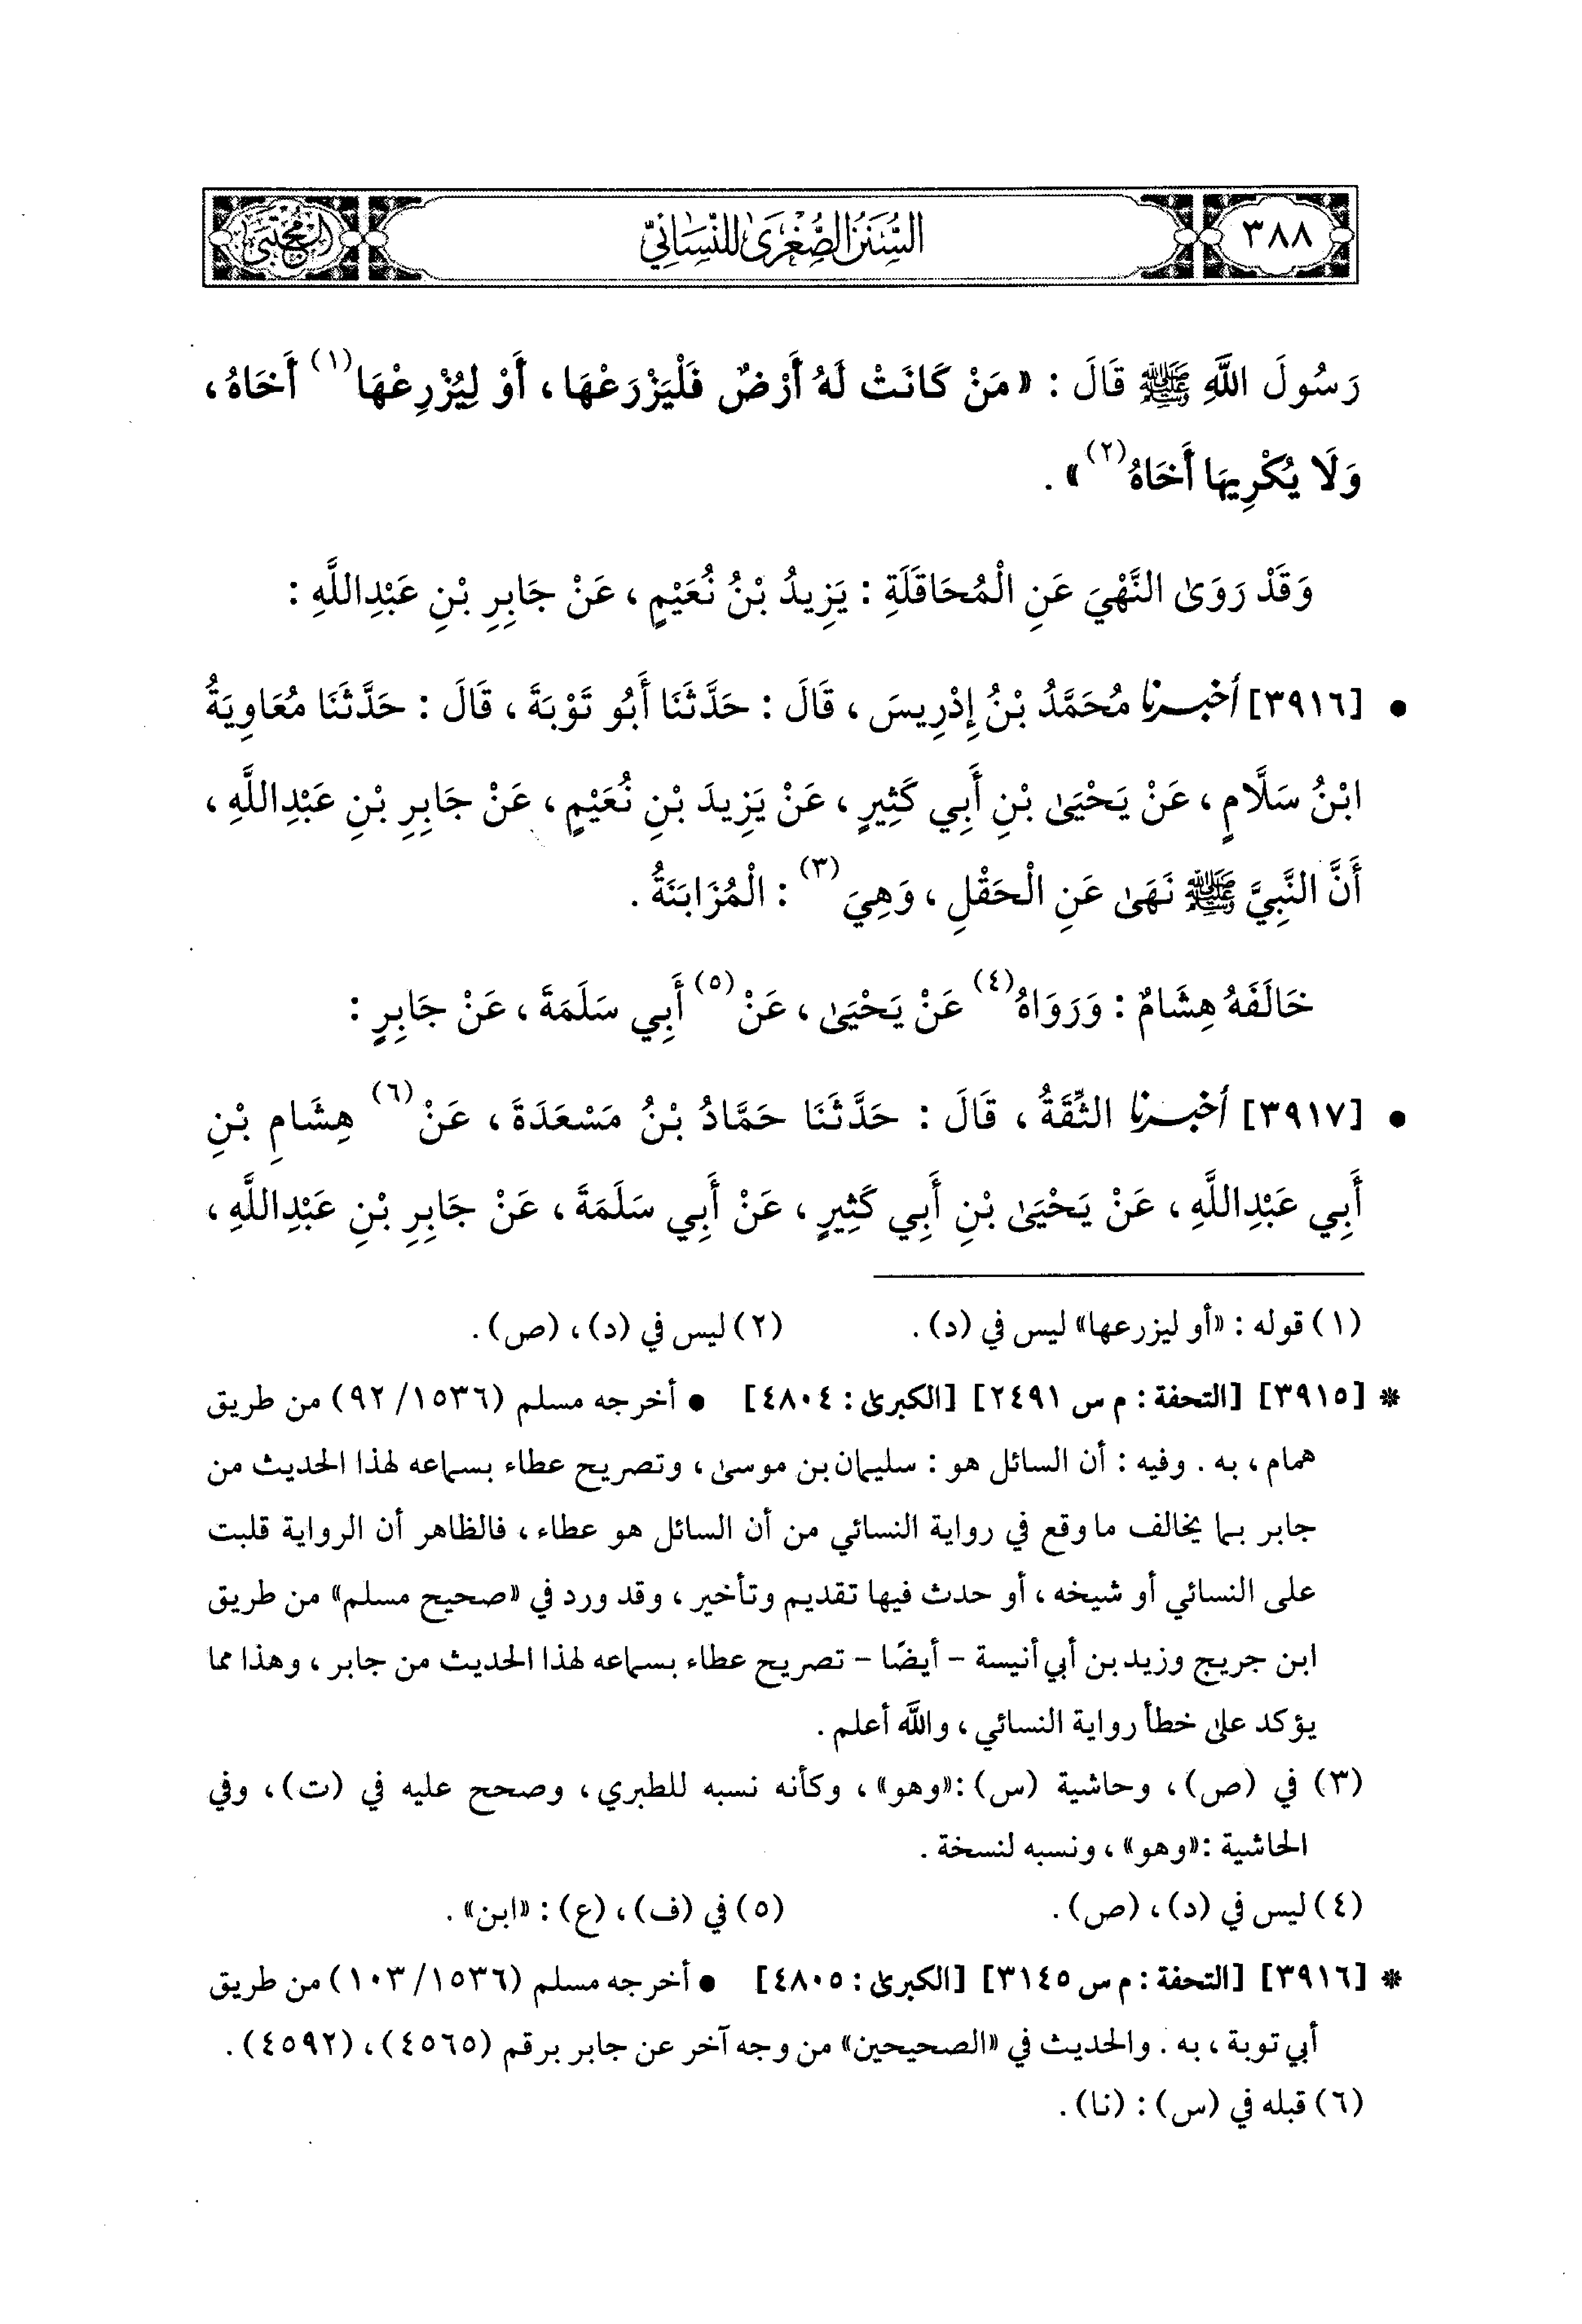 ٣٨٨
السُّنَنُ الصُّغْرَىٰ لِلنَّسَائِيِّ
المجتبى
رَسُولَ اللَّهِ ﷺ قَالَ : «مَنْ كَانَتْ لَهُ أَرْضٌ فَلْيَزْرَعْهَا، أَوْ لِيُزْرِعْهَا(١) أَخَاهُ،
وَلَا يُكْرِيهَا أَخَاهُ(٢)» .
وَقَدْ رَوَىٰ النَّهْيَ عَنِ الْمُحَاقَلَةِ : يَزِيدُ بْنُ نُعَيْمٍ، عَنْ جَابِرِ بْنِ عَبْدِاللَّهِ :
• [٣٩١٦] أخبرنا مُحَمَّدُ بْنُ إِدْرِيسَ، قَالَ : حَدَّثَنَا أَبُو تَوْبَةَ، قَالَ : حَدَّثَنَا مُعَاوِيَةُ
ابْنُ سَلَّامٍ، عَنْ يَحْيَىٰ بْنِ أَبِي كَثِيرٍ، عَنْ يَزِيدَ بْنِ نُعَيْمٍ، عَنْ جَابِرِ بْنِ عَبْدِاللَّهِ،
أَنَّ النَّبِيَّ ﷺ نَهَىٰ عَنِ الْحَقْلِ، وَهِيَ(٣) : الْمُزَابَنَةُ .
خَالَفَهُ هِشَامٌ : وَرَوَاهُ(٤) عَنْ يَحْيَىٰ، عَنْ(٥) أَبِي سَلَمَةَ، عَنْ جَابِرٍ :
• [٣٩١٧] أخبرنا الثِّقَةُ، قَالَ : حَدَّثَنَا حَمَّادُ بْنُ مَسْعَدَةَ، عَنْ(٦) هِشَامِ بْنِ
أَبِي عَبْدِاللَّهِ، عَنْ يَحْيَىٰ بْنِ أَبِي كَثِيرٍ، عَنْ أَبِي سَلَمَةَ، عَنْ جَابِرِ بْنِ عَبْدِاللَّهِ،
(١) قوله : «أو ليزرعها» ليس في (د). (٢) ليس في (د)، (ص).
* [٣٩١٥] [التحفة : م س ٢٤٩١] [الكبرىٰ : ٤٨٠٤] • أخرجه مسلم (١٥٣٦/ ٩٢) من طريق
همام، به. وفيه : أن السائل هو : سليمان بن موسىٰ، وتصريح عطاء بسماعه لهذا الحديث من
جابر بما يخالف ما وقع في رواية النسائي من أن السائل هو عطاء، فالظاهر أن الرواية قلبت
على النسائي أو شيخه، أو حدث فيها تقديم وتأخير، وقد ورد في «صحيح مسلم» من طريق
ابن جريج وزيد بن أبي أنيسة - أيضًا - تصريح عطاء بسماعه لهذا الحديث من جابر، وهذا مما
يؤكد على خطأ رواية النسائي، والله أعلم.
(٣) في (ص)، وحاشية (س) : «وهو»، وكأنه نسبه للطبري، وصحح عليه في (ت)، وفي
الحاشية : «وهو»، ونسبه لنسخة.
(٤) ليس في (د)، (ص). (٥) في (ف)، (ع) : «ابن».
* [٣٩١٦] [التحفة : م س ٣١٤٥] [الكبرىٰ : ٤٨٠٥] • أخرجه مسلم (١٥٣٦/ ١٠٣) من طريق
أبي توبة، به. والحديث في «الصحيحين» من وجه آخر عن جابر برقم (٤٥٦٥)، (٤٥٩٢).
(٦) قبله في (س) : (نا).